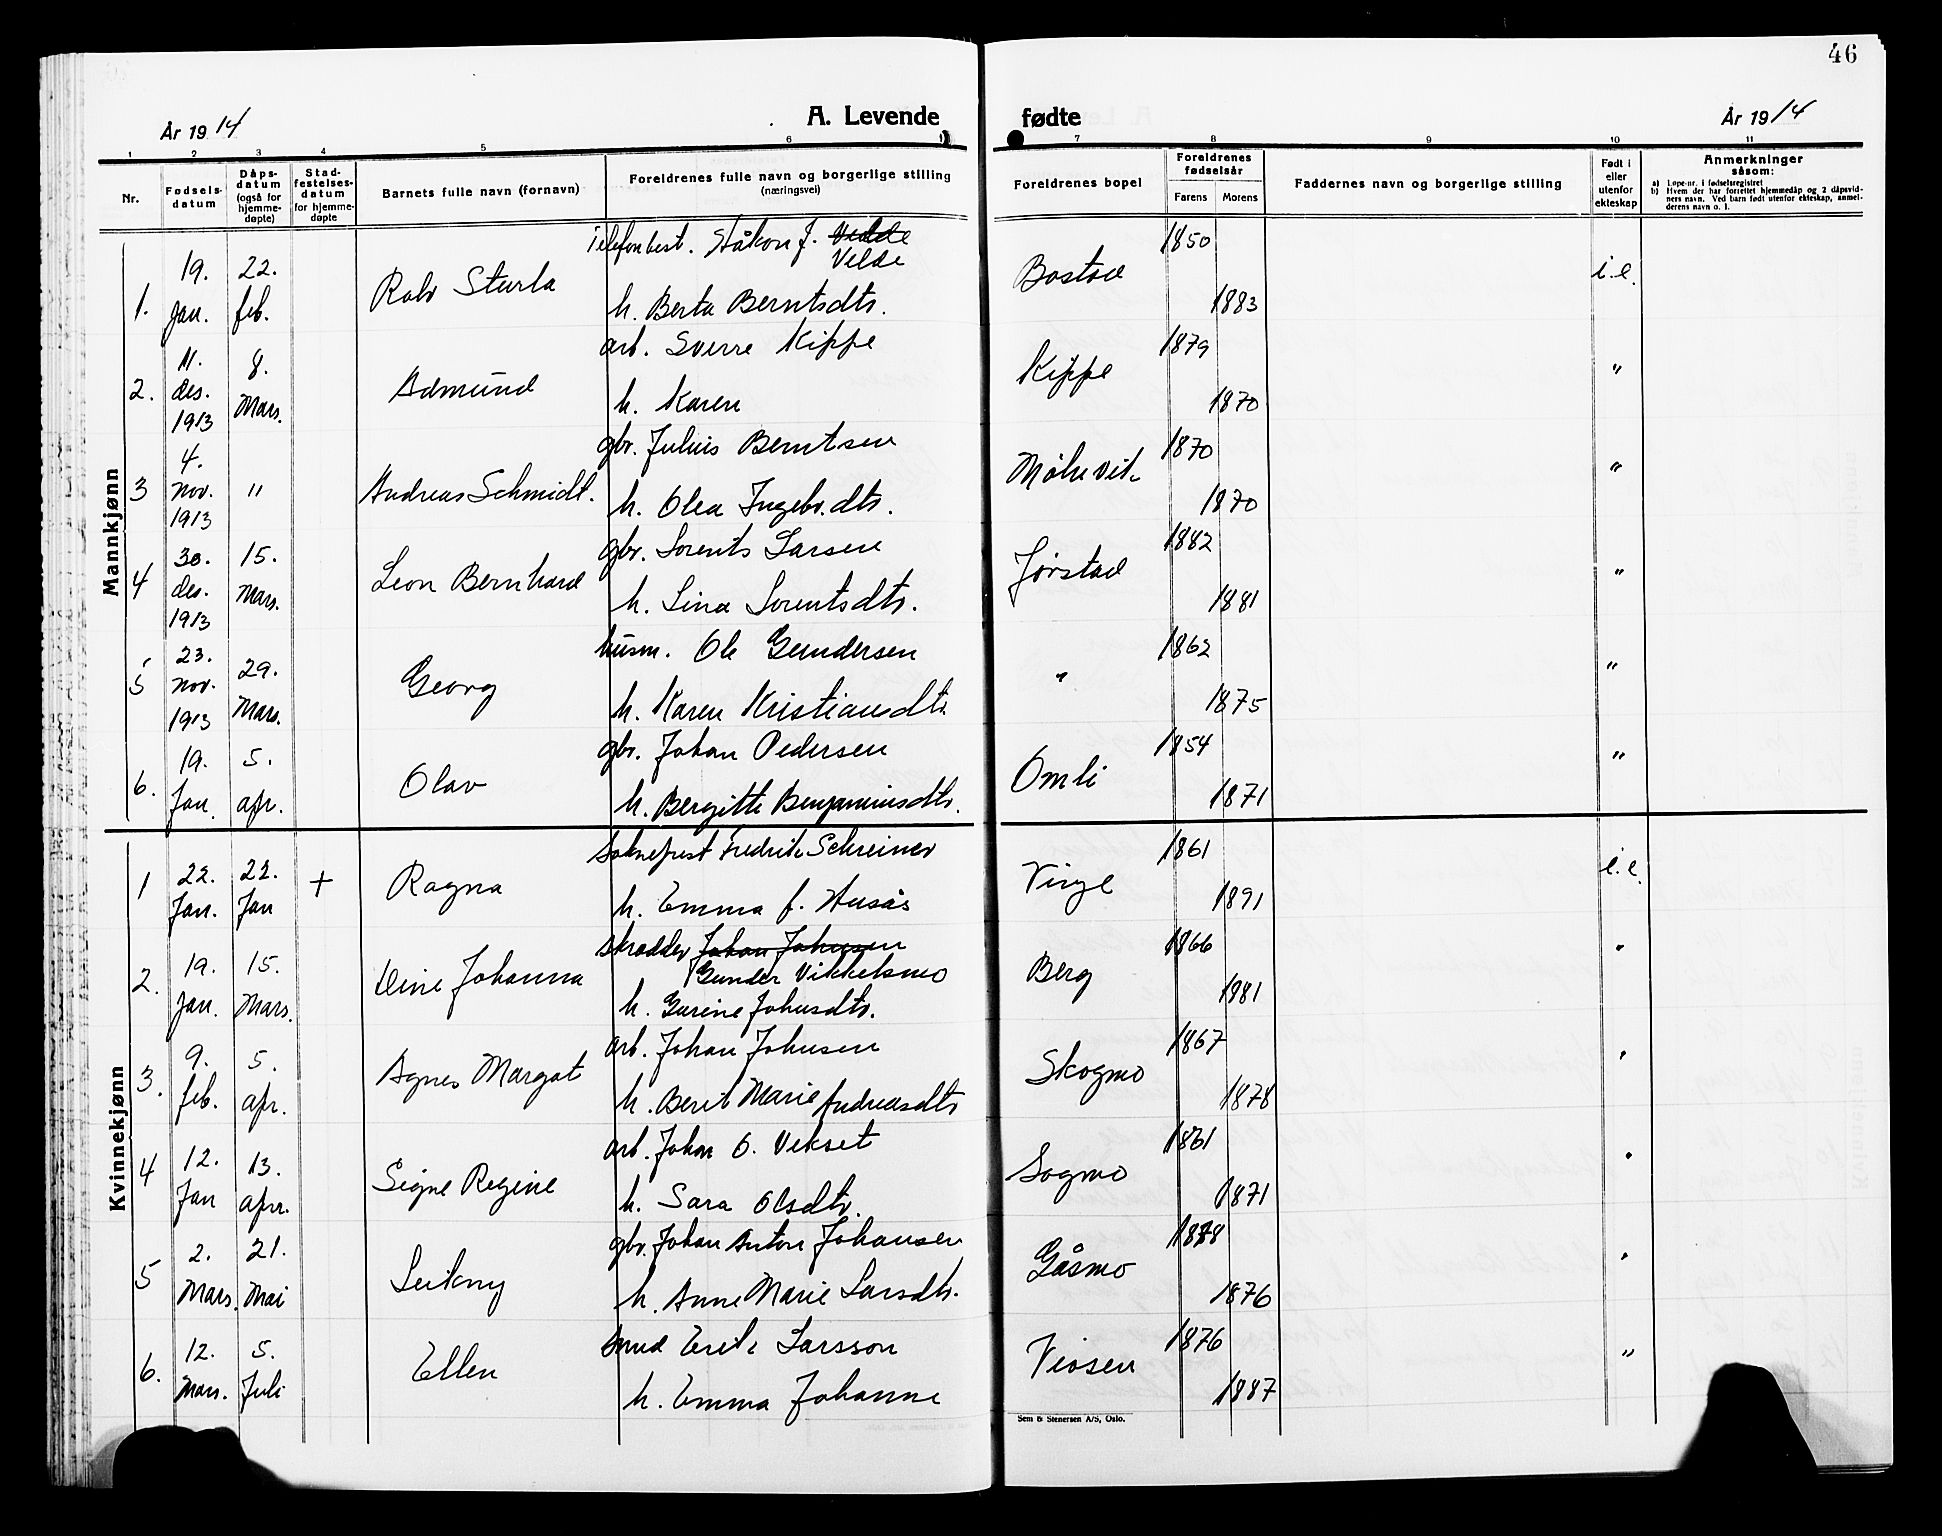 46
År 1914
A. Levende fødte
År 1914
1 2 3 4 5 6 7 8 9 10 11
Nr.
Fødsels-
datum
Dåps-
datum
(også for
hjemme-
døpte)
Stad-
festelses-
datum
for hjemme-
døpte
Barnets fulle navn (fornavn)
Foreldrenes fulle navn og borgerlige stilling
(næringsvei)
Foreldrenes bopel
Foreldrenes
fødselsår
Farens Morens
Faddernes navn og borgerlige stilling
Født i
eller
utenfor
ekteskap
Anmerkninger
såsom:
a) Løpe-nr. i fødselsregistret
b) Hvem der har forrettet hjemmedåp og 2 dåpsvid-
ners navn. Ved barn født utenfor ekteskap, anmel-
derens navn o. l.
Mannkjønn
1. 19. Jan. 22. feb. Rolv Sturla
Telefonbest. Håkon J. Velde
Velde
h. Berta Berntsdtr.
Bostad 1850 1883 i.e.
2. 11. des. 1913 8. Mars. Admund
arb. Sverre Kippe
h. Karen
Kippe 1879 1870 "
3 4. Nov. 1913 " Andreas Schmidt.
gbr. Julius Berntsen
h. Olea Ingebr.dtr.
1870 1870 "
4 30. des. 1913 15. Mars. Leon Bernhard
gbr. Lorents Larsen
h. Lina Lorentsdtr.
Jørstad 1882 1881 "
5 23. Nov. 1913 29. Mars. Georg
husm. Ole Gundersen
h. Karen Kristiansdtr.
" 1862 1875 "
6. 19. Jan. 5. apr. Olav
gbr. Johan Pedersen
h. Bergitte Benjaminsdtr.
Omli 1854 1871 "
Kvinnekjønn
1 22. Jan. 22. Jan + Ragna
Sokneprest Fredrik Schreiner
h. Emma f. Husås
Vinje 1861 1891 i.e.
2. 19. Jan. 15. Mars. Dine Johanna
skredder Johan Johnsen
Gunder Vikkelsmo
h. Gurine Johnsdtr.
Berg 1866 1981 "
3. 9. feb. 5. apr. Agnes Margot
arb. Johan Johnsen
h. Berit Marie Andreasdtr
Skogmo 1867 1878 "
4 12. Jan 13. apr. Signe Regine
arb. Johan O. Vekset
h. Sara Olsdtr.
Sogmo 1861 1871 "
5 2. Mars. 21. Mai Leikny
gbr. Johan Anton Johansen
h. Anne Marie Larsdtr.
Gåsmo 1878 1876 "
6. 12. Mars. 5. Juli Ellen
smed Erik Larsson
h. Emma Johanne
Viosen 1876 1887 "
Sem & Stenersen A/S, Oslo.